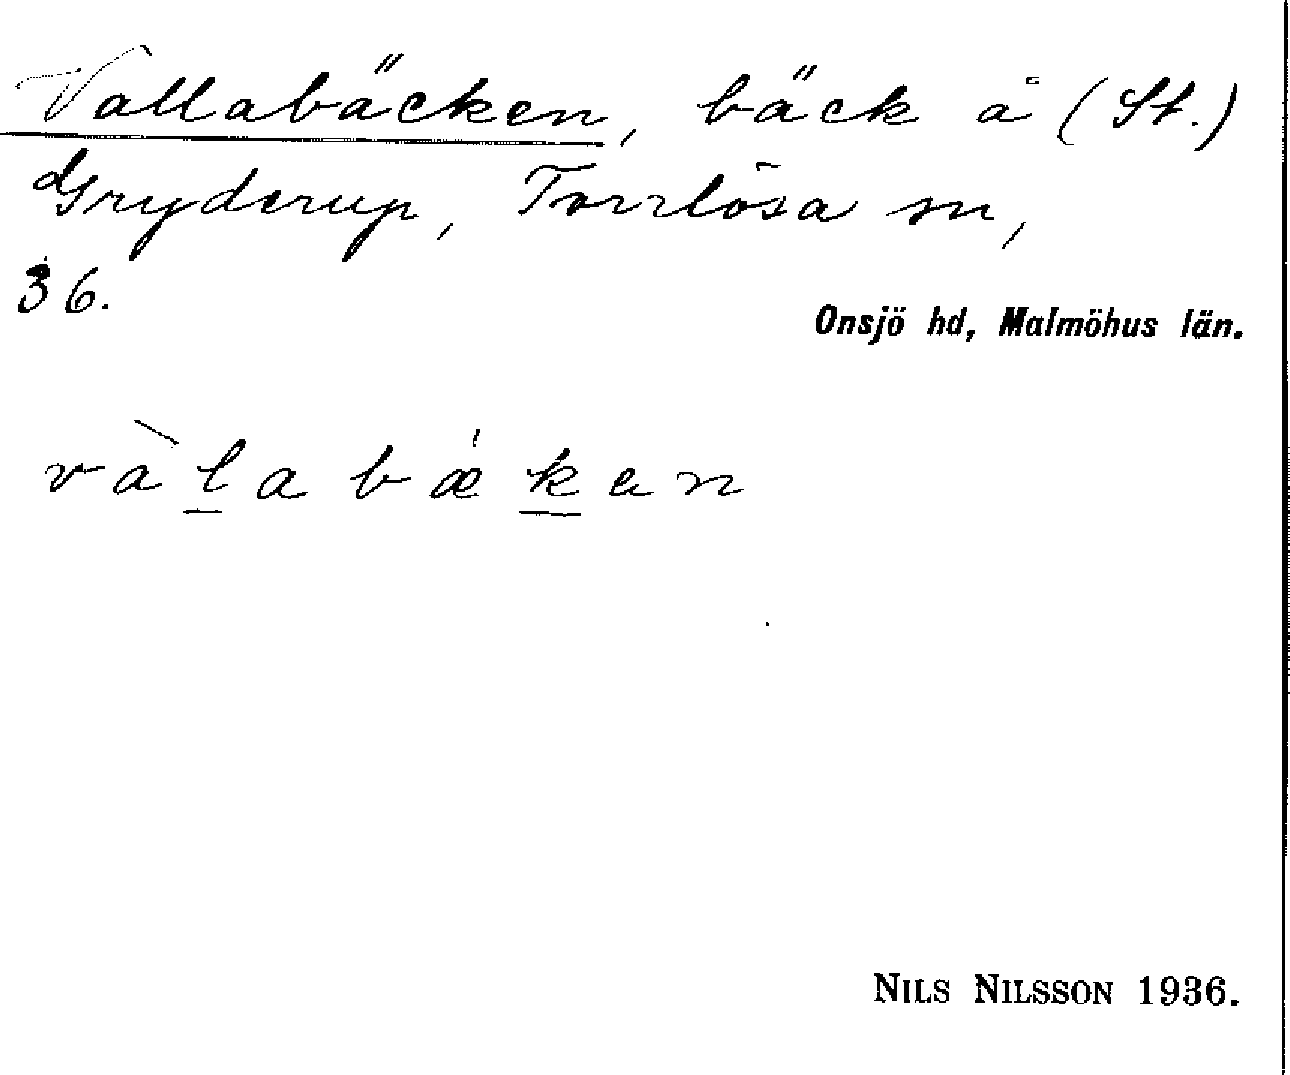 Vallabäcken, bäck å (St.)
Gryderup, Torrlösa sn,
36.
Onsjö hd, Malmöhus län.
vàlabǽken
NILS NILSSON 1936.